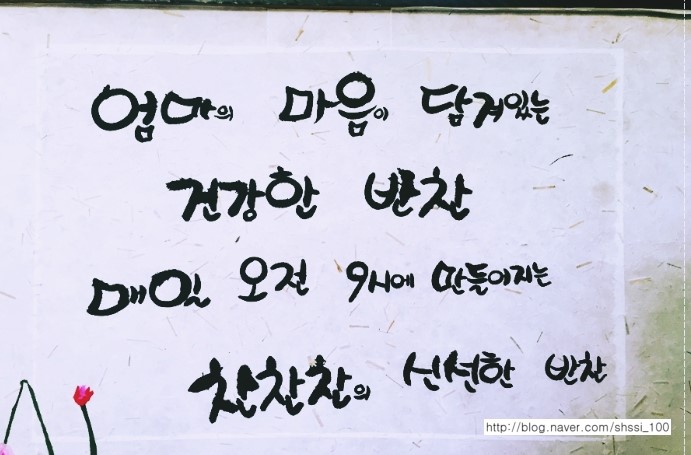 엄마의 마음이 담겨있는
건강한 반찬
매일 오전 9시에 만들어지는
찬찬찬의 신선한 반찬
http://blog.naver.com/shssi_100